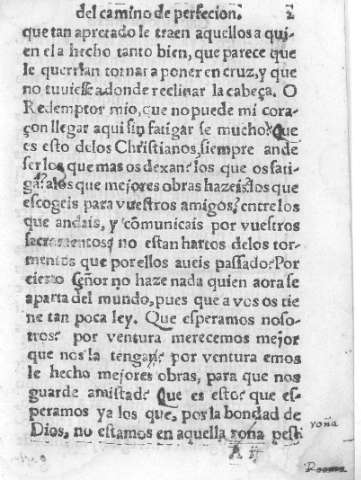 del camino de perfecion. 2
que tan apretado le traen aquellos a qui-
en el a hecho tanto bien, que parece que
le querrian tornar a poner en cruz, y que
no tuuiesse adonde reclinar la cabeça. O
Redemptor mio, que no puede mi cora-
çon llegar aqui sin fatigar se mucho? Que
es esto delos Christianos, siempre ande
ser los que mas os dexan? los que os fati-
gã? alos que mejores obras hazeis? los que
escogeis para vuestros amigos? entre los
que andais, y cõmunicais por vuestros
sacramentos? no estan hartos delos tor-
mentos que por ellos aueis passado? Por
cierto Señor no haze nada quien aora se
aparta del mundo, pues que a vos os tie
ne tan poca ley. Que esperamos noso-
tros? por ventura merecemos mejor
que nos la tengan? por ventura emos
le hecho mejores obras, para que nos
guarde amistad? Que es esto? que es-
peramos ya los que, por la bondad de
Dios, no estamos en aquella roña pesti
roña
A ij